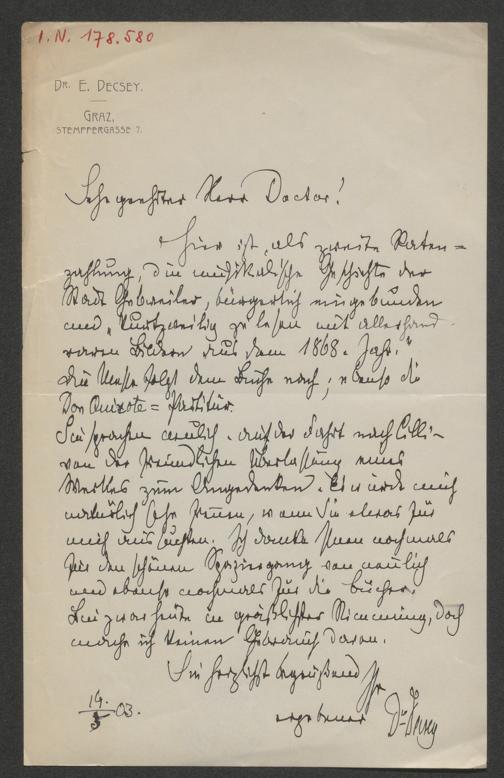 I.N. 178.580
DR. E. DECSEY.
GRAZ,
STEMPFERGASSE 7.
Sehr geehrter Herr Doctor!
Hier ist, als zweite Raten=
zahlung, die musikalische Geschichte der
Stadt Gebweiler, bürgerlich eingebunden
und „kurtzweilig zu lesen mit allerhand
raren Bildern aus dem 1868. Jahr."
Die Messe folgt dem Buche nach; ebenso die
Don Quixote=Partitur.
Sie sprachen neulich auf der Fahrt nach Cilli
von der freundlichen Überlassung eines
Werkes zum Angedenken. Es würde mich
natürlich sehr freuen, wenn Sie etwas für
mich aussuchten. Ich danke Ihnen nochmals
für den schönen Spaziergang von neulich
und ebenso nochmals für die Bücher.
Bin zwar heute in grässlichster Stimmung, doch
mache ich keinen Gebrauch davon.
Sie herzlichst begrüssend Ihr
ergebener Dr Decsey
14./5 03.